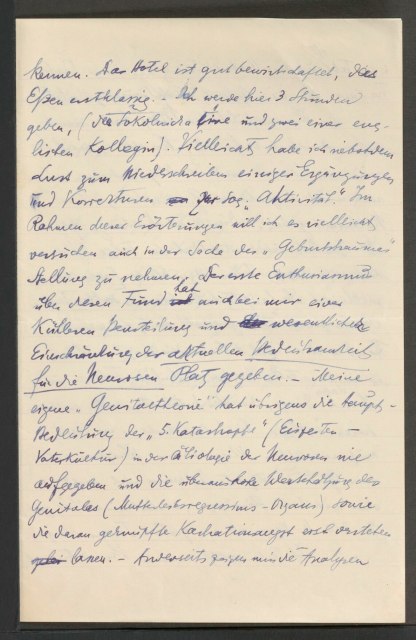 kennen. Das Hotel ist gut bewirtschaftet, das
Eßen erstklassig. – Ich werde hier 3 Stunden
geben, (die Sokolnicka eine und zwei einer eng-
lischen Kollegin). Vielleicht habe ich nebstdem
Lust zum Niederschreiben einiger Ergänzungen
und Korrekturen zur sog. „Aktivität." Im
Rahmen dieser Erörterungen will ich es vielleicht
versuchen auch in der Sache des „Geburtstraumes"
Stellung zu nehmen. Der erste Enthusiasmus
über diesen Fund hat auch bei mir einer
kühleren Beurteilung und wesentlichen
Einschränkung der aktuellen Bedeutsamkeit
für die Neurosen Platz gegeben. – Meine
eigene „Genitaltheorie" hat übrigens die Haupt-
Bedeutung der „5. Katastrophe" (Eiszeiten –
Vaterkultur) in der Ätiologie der Neurosen nie
aufgegeben und die überaus hohe Wertschätzung des
Genitales (Mutterleibsregressions-Organs) sowie
die daran geknüpfte Kastrationsangst erst verstehen
lassen. – Anderseits zeigen mir die Analysen